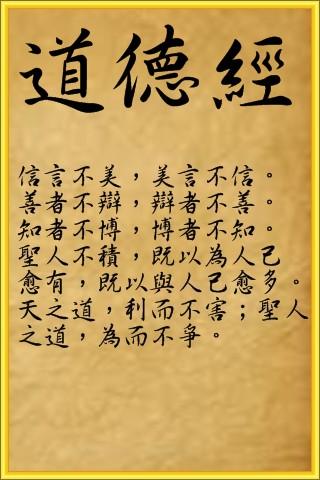 道德經
信言不美，美言不信。
善者不辯，辯者不善。
知者不博，博者不知。
聖人不積，既以為人己
愈有，既以與人己愈多。
天之道，利而不害；聖人
之道，為而不爭。